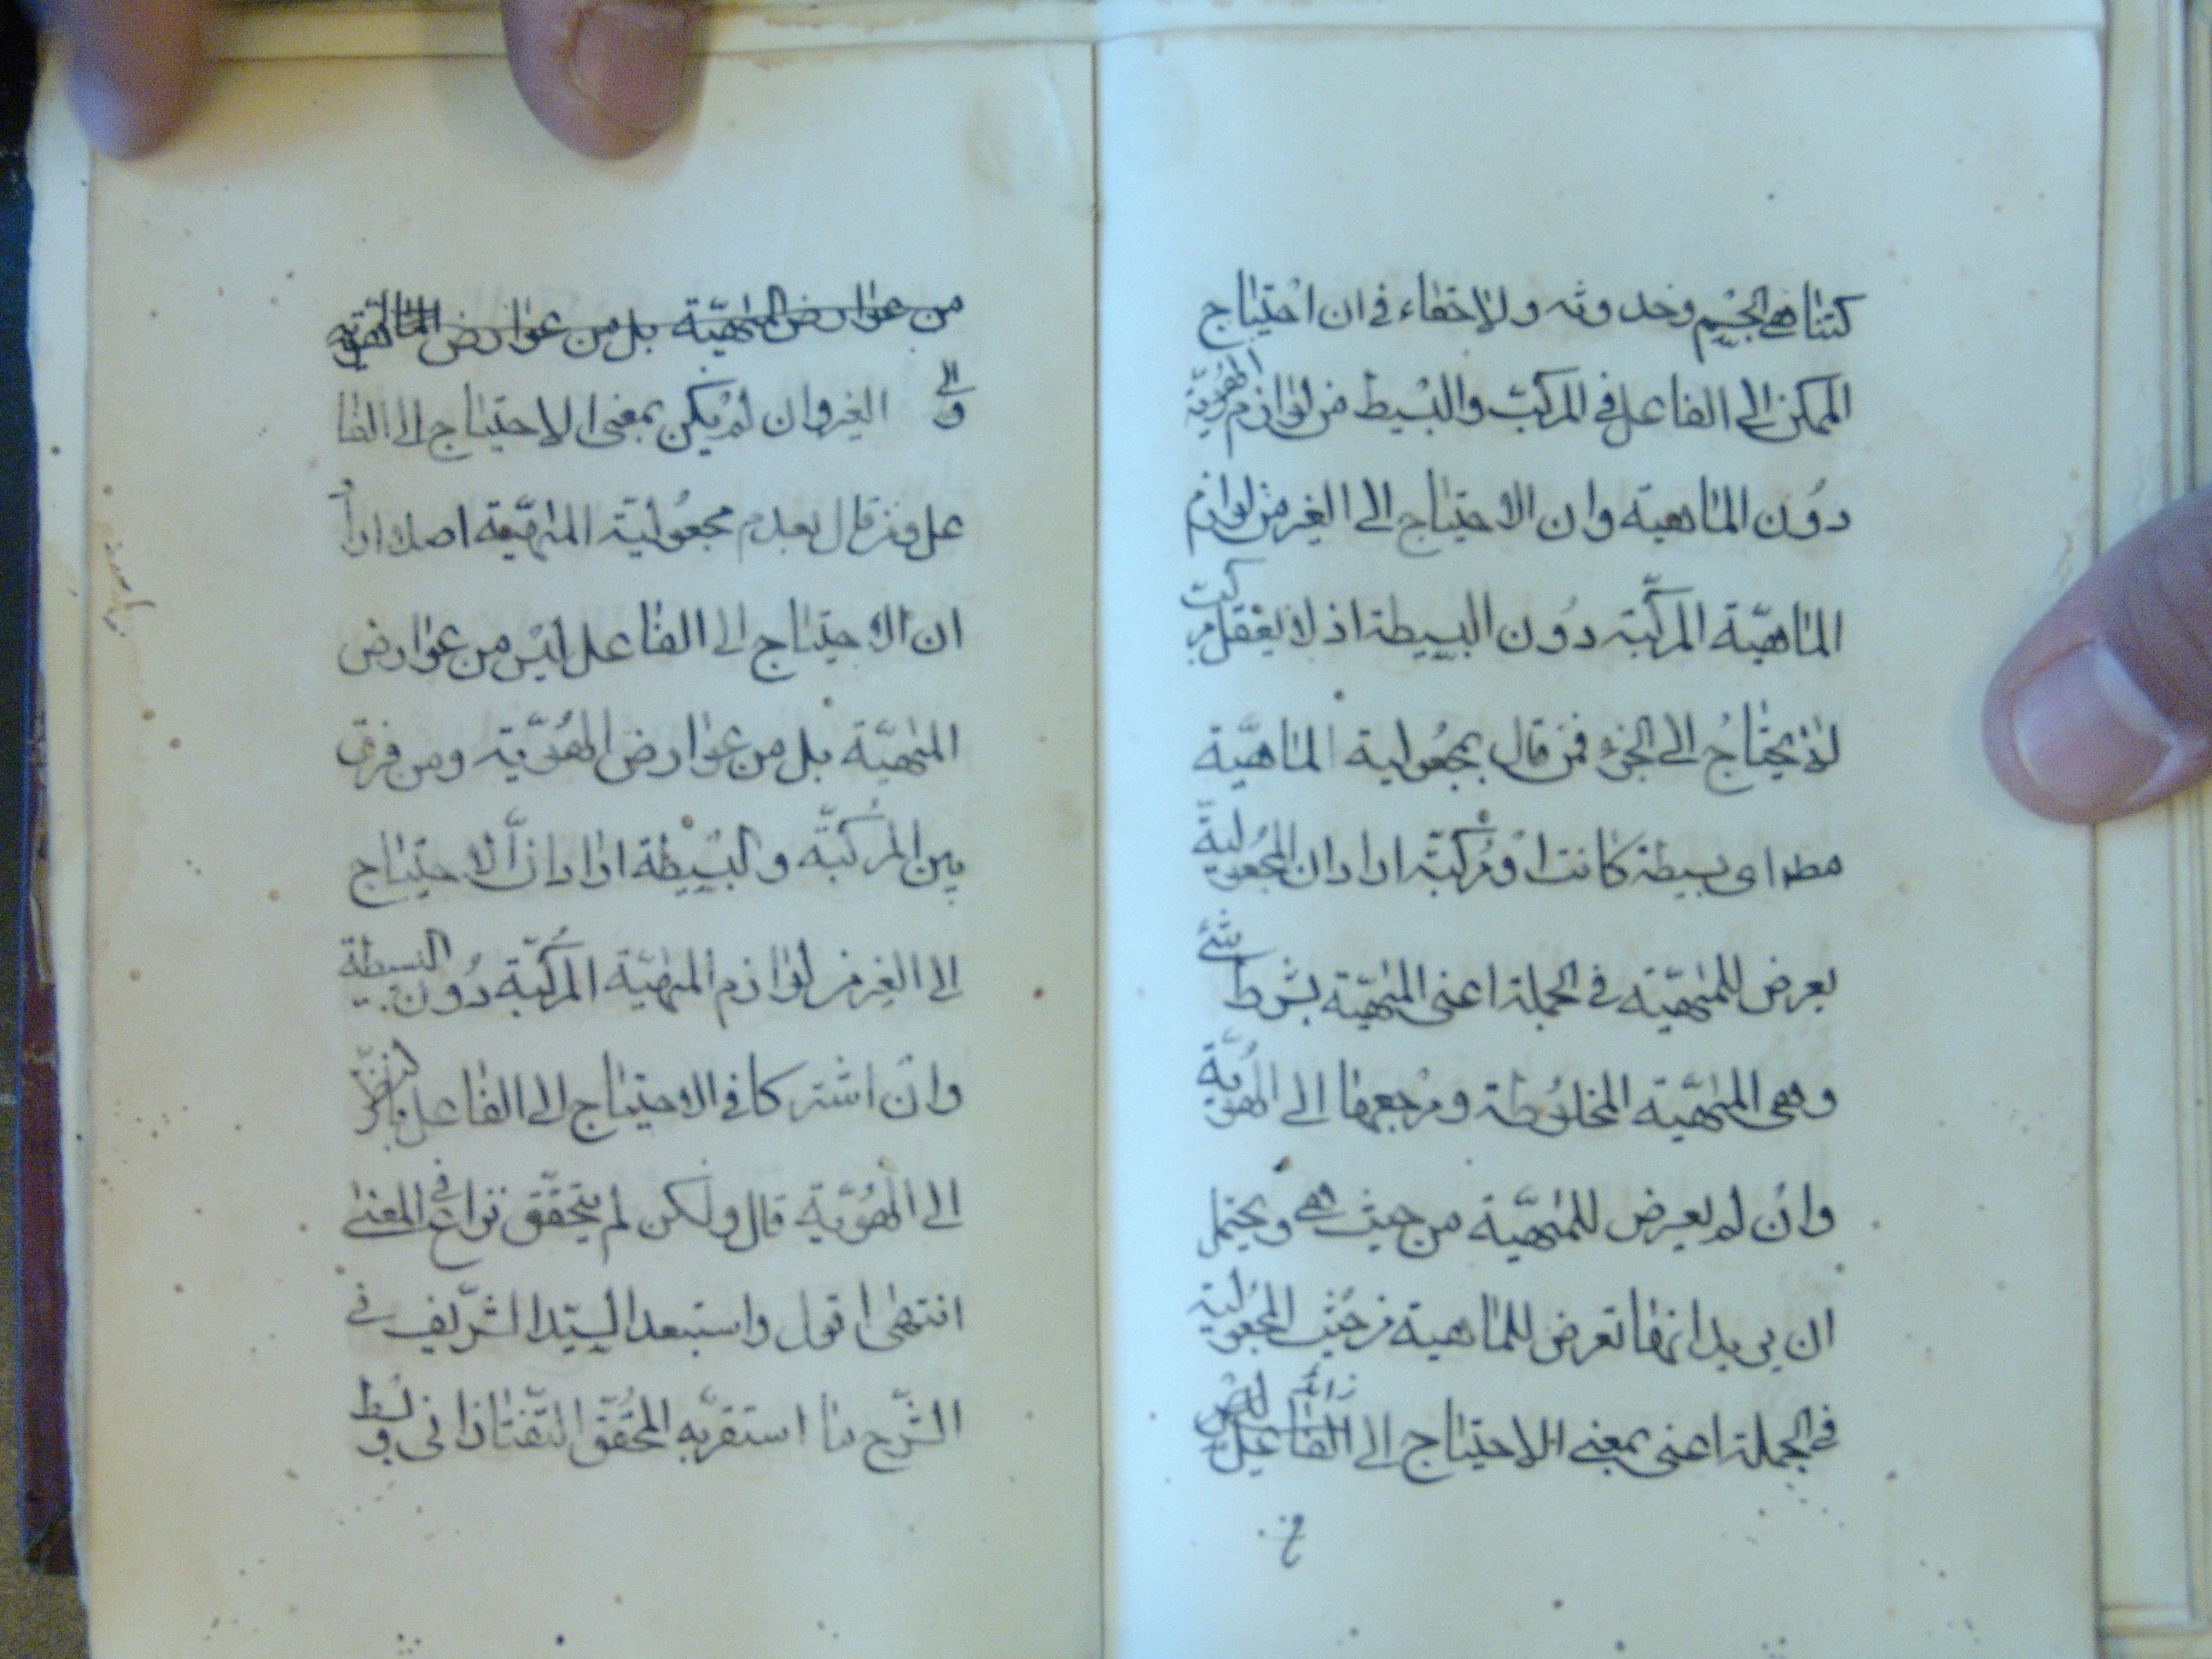 كتناهى الجسم وحدوثه ولاخفاء فى ان احتياج
الممكن الى الفاعل فى المركب والبسيط من لوازم الهوية
دون الماهية وان الاحتياج الى الغير من لوازم
الماهية المركبة دون البسيطة اذ لا يعقل مركب
لا يحتاج الى الجزء فمن قال بمجعولية الماهية
مطلقا اى بسيطة كانت او مركبة اراد ان المجعولية
يعرض للمٰهية فى الجملة اعنى المٰهية بشرط شئ
وهى المٰهية المخلوطة ومرجعها الى الهوية
وان لم يعرض للمٰهية من حيث هى ويحتمل
ان يريد انها تعرض للماهية من حيث المجعولية
فى الجملة اعنى بمعنى الاحتياج الى الفاعل
من عوارض المٰهية بل من عوارض
الغير وان لم يكن بمعنى الاحتياج الى الفا
عل ومن قال بعدم مجعولية المٰهية اصلا اراد
ان الاحتياج الى الفاعل ليس من عوارض
المٰهية بل من عوارض الهوية ومن فرق
بين المركبة والبسيطة اراد ان الاحتياج
الى الغير من لوازم المٰهية المركبة دون البسيطة
وان اشتركا فى الاحتياج الى الفاعل
الى الهوية قال ولكن لم يتحقق نزاع فى المعنى
انتهى اقول واستبعد السيد الشريف فى
الشرح ما استقربه المحقق التفتازانى